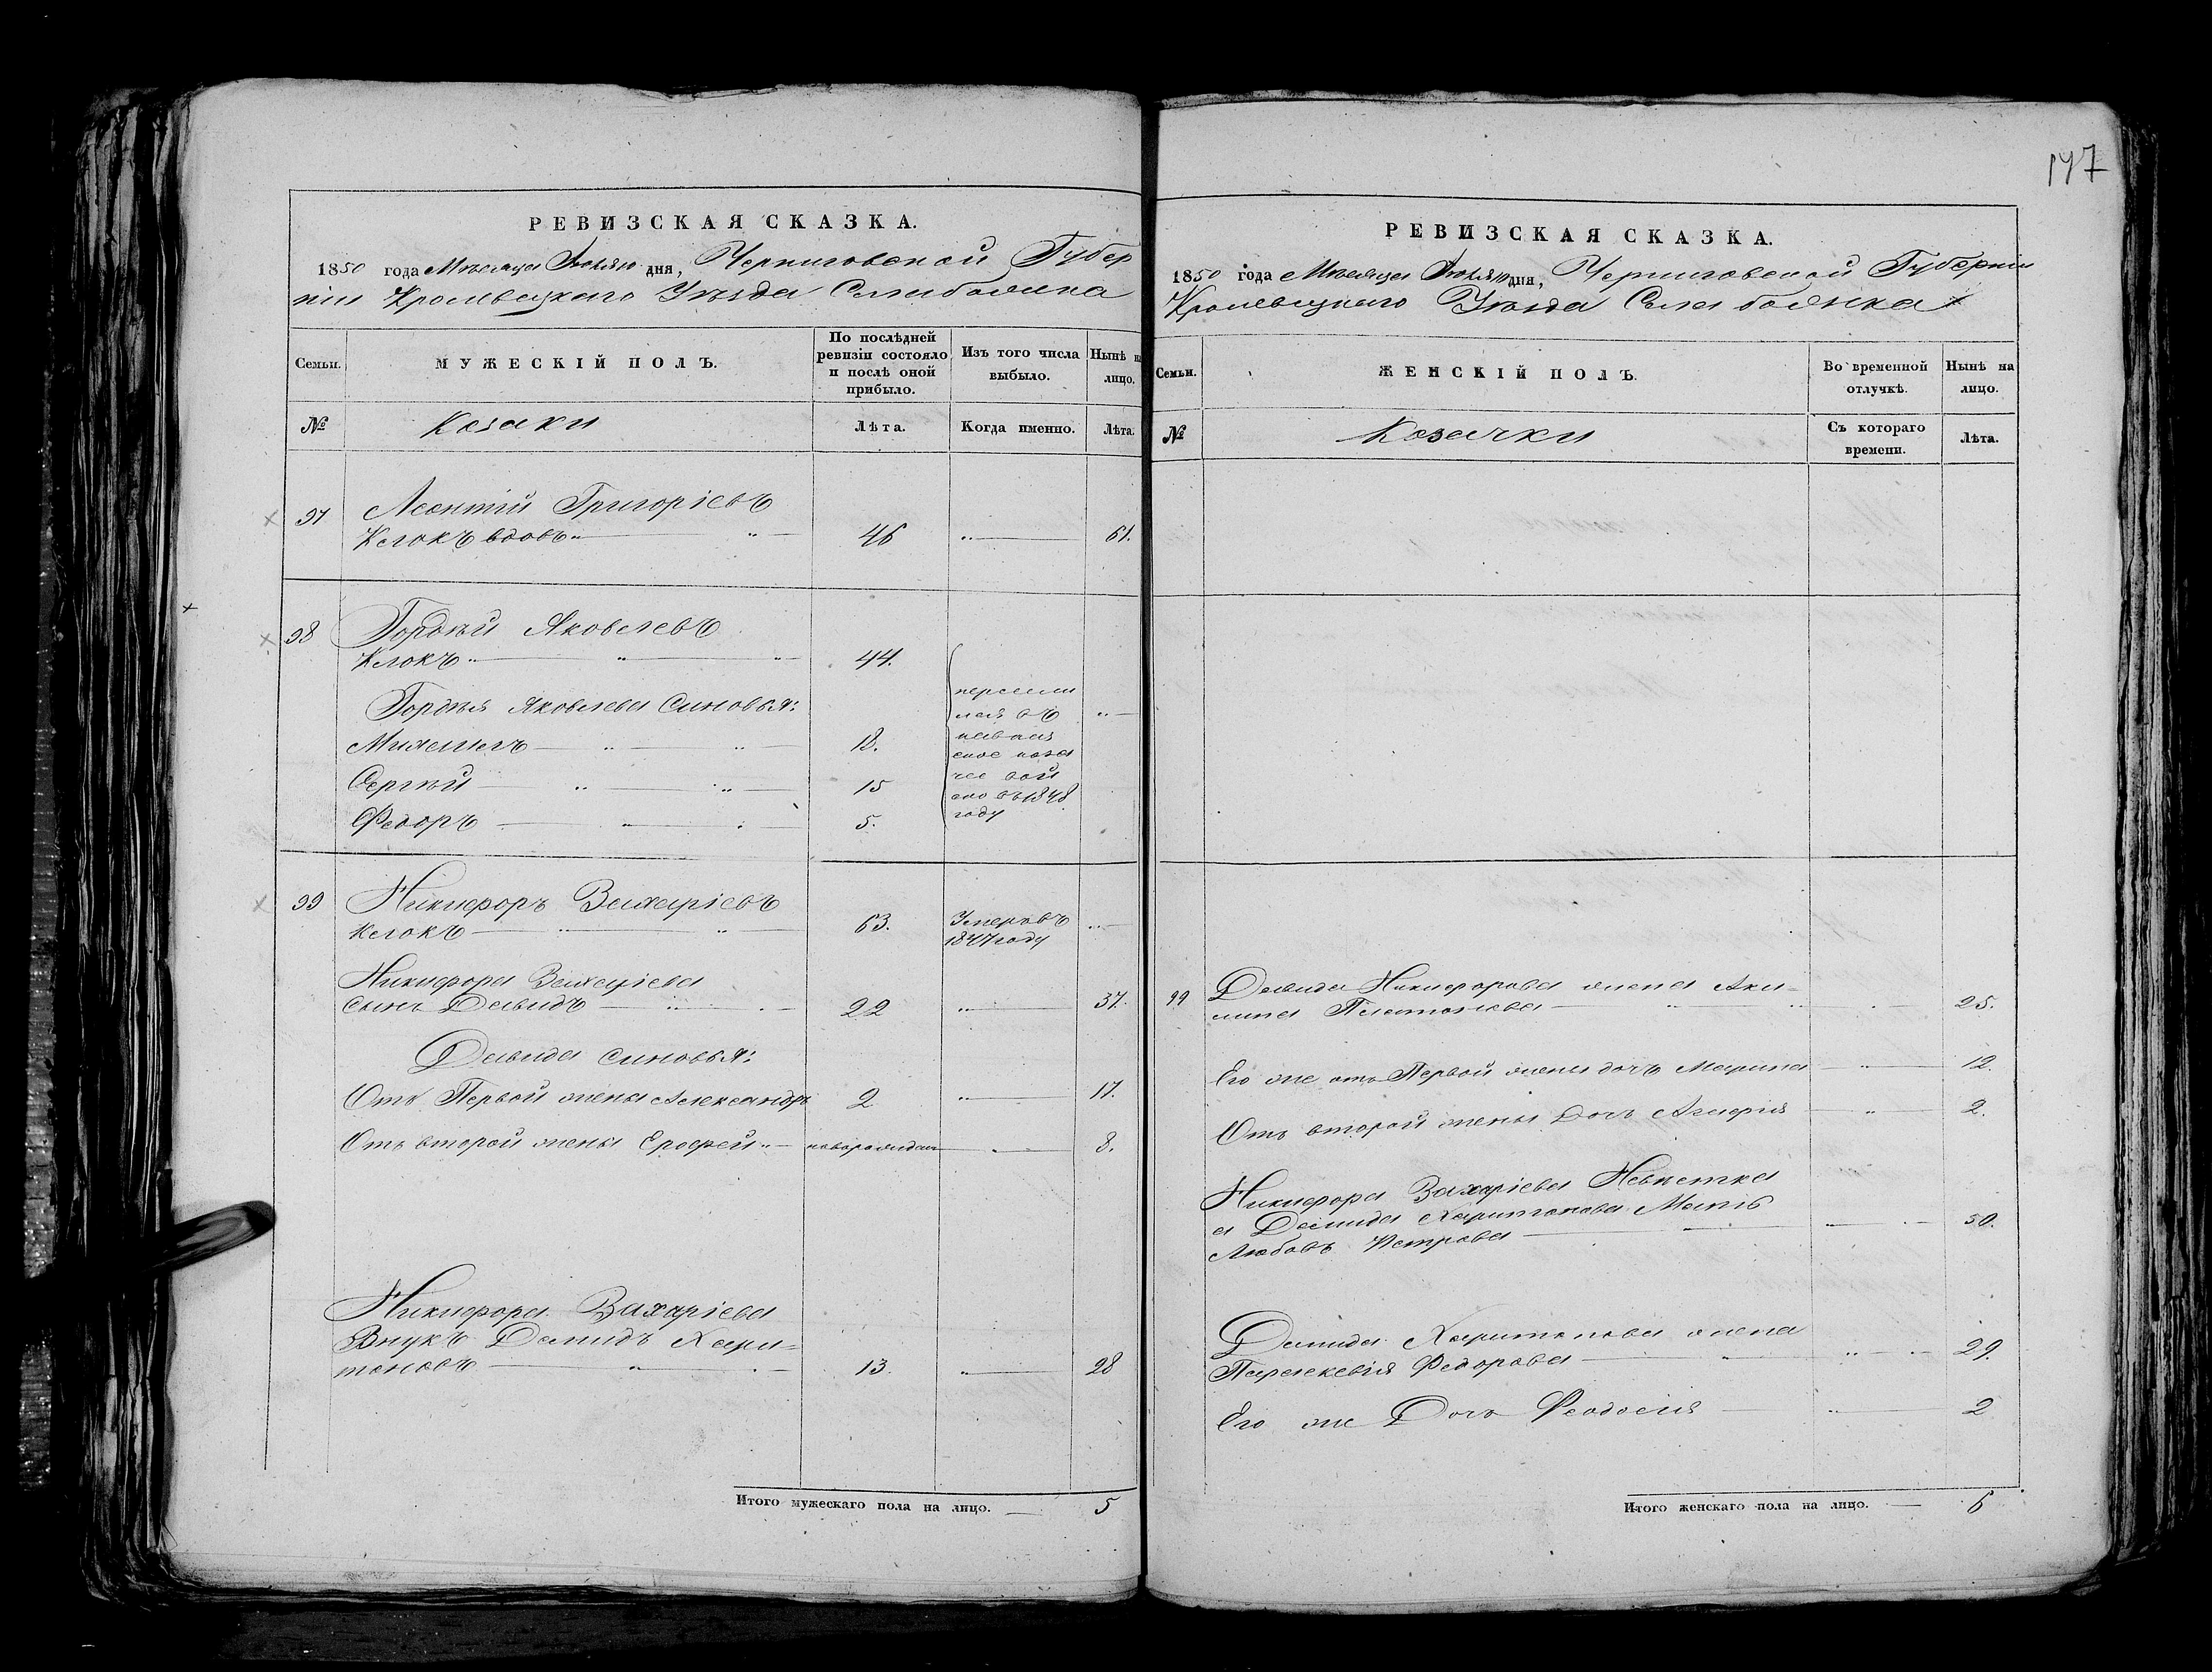 РЕВИЗСКАЯ СКАЗКА.
1850 года Месяца дня, Черниговской Губер
ніи Кролевецкаго Уѣзда Села
Семьи.
МУЖЕСКІЙ ПОЛЪ.
По послѣдней
ревизіи состояло
и послѣ оной
прибыло.
Изъ того числа
выбыло.
Нынѣ н
лицо.
№
Козаки
Лѣта.
Когда именно.
Лѣта.
97 Леонтій Григоріевъ
Клокъ вдовъ 46 61.
98 Гордѣй Яковлевъ
Клокъ 44.
Гордѣя Яковлева Сыновья:
Михаилъ 18.
Сергѣй 15
Федоръ 5.
пересели
лся въ
кавказ
ское каза
чее вой
ско въ 1848
году
99 Никифоръ Захаріевъ
Клокъ 63. Умеръ въ
1847 году
Никифора Захаріева
сынъ Давидъ 22 37.
Давида сыновья:
Отъ Первой жены Александръ 2 17.
Отъ второй жены Ерофей новорожден 8.
Никифора Захаріева
Внукъ Демидъ Хари-
тоновъ 13. 28
Итого мужескаго пола на лицо. 5
147
РЕВИЗСКАЯ СКАЗКА.
1850 года Месяца дня, Черниговской Губерніи
Кролевецкаго Уѣзда Села
Семьи.
ЖЕНСКІЙ ПОЛЪ.
Во временной
отлучкѣ.
Нынѣ на
лицо.
№
Козачки
Съ котораго
времени.
Лѣта.
99 Давида Никифорова жена Аки-
лина Платонова 25.
Его же отъ Первой жены дочь Марина 12.
Отъ второй жены Дочь 2.
Никифора Захаріева Невѣстка
а Демида Харитонова Мать
Любовь Петрова 50.
Демида Харитонова жена
Параскевія Федорова 29.
Его же Дочь Феодосія 2
Итого женскаго пола на лицо. 6